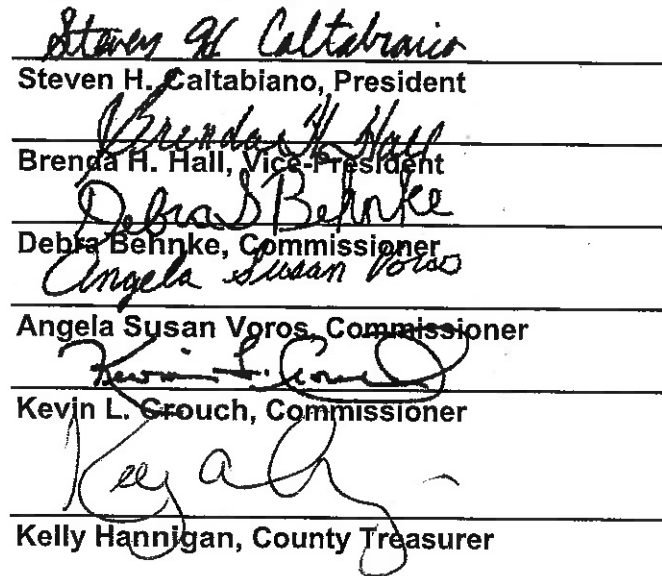 Steven H Caltabiano
Steven H. Caltabiano, President
Brenda H. Hall
Brenda H. Hall, Vice-President
Debra S Behnke
Debra Behnke, Commissioner
Angela Susan Voros
Angela Susan Voros, Commissioner
Kevin L. Crouch, Commissioner
Kelly Hannigan, County Treasurer